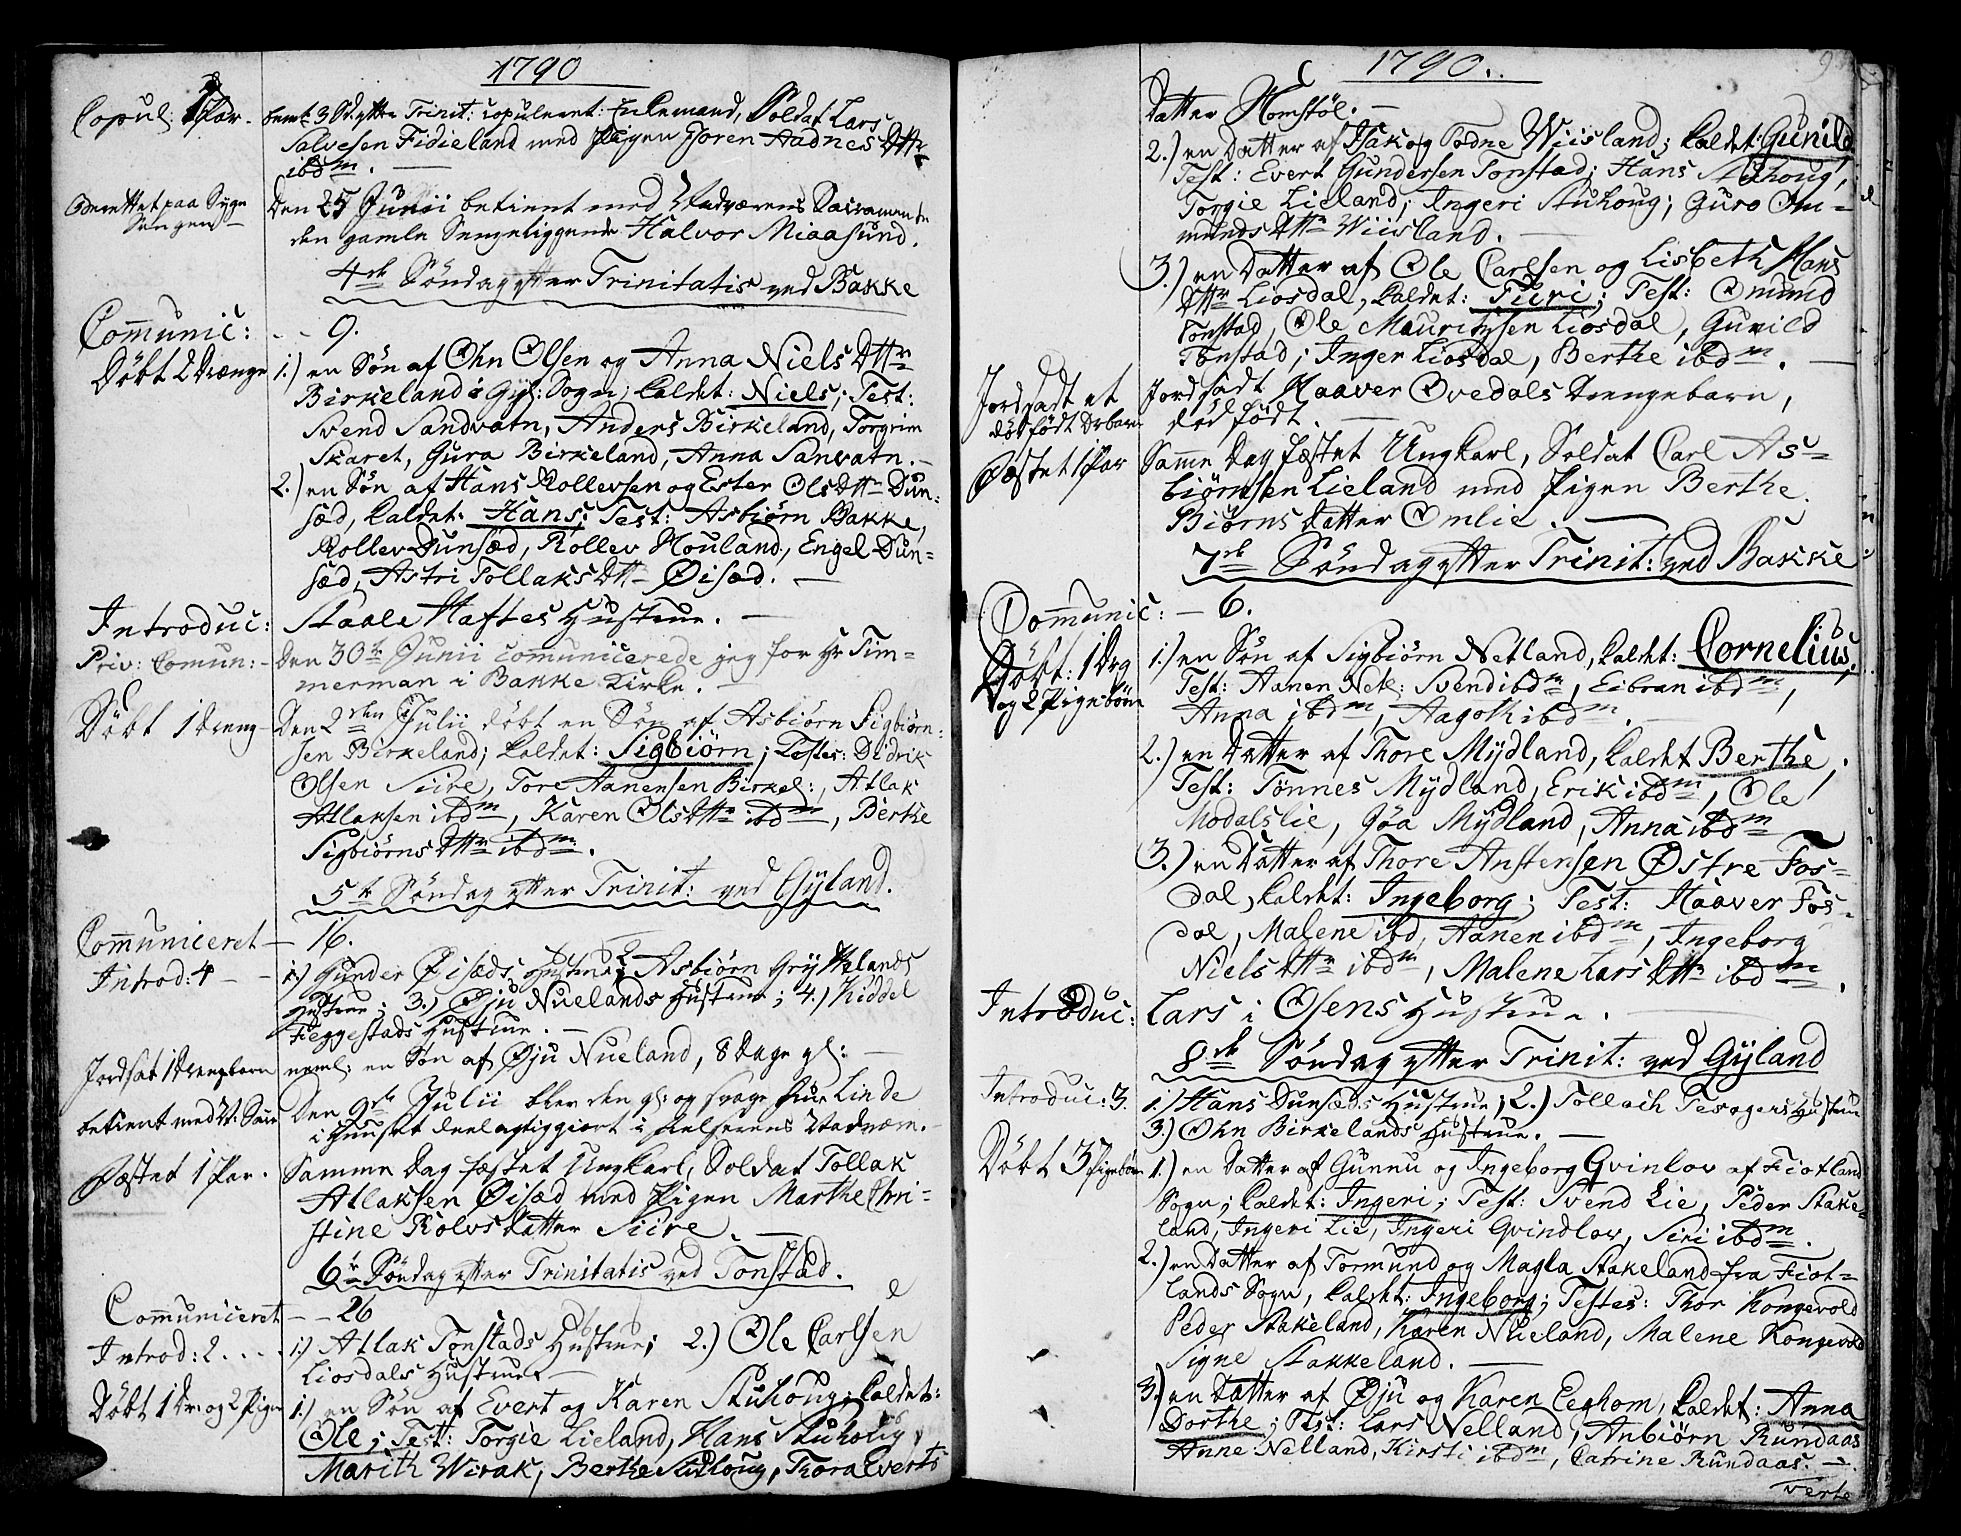 1790
Copul: 1 Par.
bemt. 3 S. efter Trinit: copuleeret: Enkemand, Soldat Lars
Salvesen Fidieland med Pigen Joren Aadnes Dttr
ibdm.
Berettet paa Syge
Sengen
Den 25 Junii betient med Nadverens Sacramente
den gamle Sengeliggende Halvor Miaasund.
4de Söndag efter Trinitatis ved Bakke
Communic: - - 9.
Döbt 2 Drenge
1.) en Sön af Ohn Olsen og Anna Niels Dttr
Birkeland i Gyl: Sogn; kaldet: Niels; Test:
Svend Sandvatn, Anders Birkeland, Torgrim
Skaret, Gura Birkeland, Anna Sanvatn.
2.) en Sön af Hans Rollevsen og Ester Ols Dttr Dun-
sæd, kaldet: Hans; Test: Asbiörn Bakke,
Rollev Dunsæd, Rollev Houland, Engel Dun-
sæd, Astri Tollaks Dtt Øisæd.
Introduc: Staale Haftes Hustrue.
Priv: Comun: - Den 30te Junii comunicerede jeg for Hr Tim-
merman i Bakke Kirke.
Döbt 1 dreng - Den 2den Julii döbt en Sön af Asbiörn Sigbiörn-
sen Birkeland; kaldet: Sigbiörn; Testes: Didrik
Olsen Siire, Tore Aanensen Birkel:, Atlak
Atlaksen ibdm, Karen Ols Dttr ibdm, Berthe
Sigbiörns Dttr ibdm.
5te Söndag efter Trinit: ved Gyland.
Communiceret - 16.
Introd: 4 -
1.) Gunder Øisæds Hustrue; 2 Asbiörn Gryttelands
Hustrue; 3.) Øju Nuelands Hustrue; 4.) Kiddel
Feggestads Hustrue.
Jordsat 1 Drengebarn neml: en Sön af Øju Nueland, 8 Dage gl:
betient med N: Sacr
Den 9de Julii blev den gl: og svage Gur Linde
i Huuset deelagtiggiort i Frelserens Nadvere.
Fæstet 1 Par. Samme Dag fæstet Ungkarl, Soldat Tollak
Atlaksen Øisæd med Pigen Marthe Chri-
stine Rolvsdatter Siire.
6te Söndag efter Trinitatis ved Tonstad.
Communiceret - - 26
Introd: 2 . . .
1.) Atlak Tonstads Hustrue; 2.) Ole Carlsen
Liosdals Hustrue.
Döbt 1 Dr. og 2 Piger
1.) en Sön af Evert og Karen Stuhoug; kaldet:
Ole; Test: Torgie Lieland, Hans Stuhoug,
Marith Wirak, Berthe Stuhoug, Thora Everts
1790.
datter Homstöl.
2.) en Datter af Isak og Todne Wiisland; kaldet: Gunild
Test: Evert Gundersen Tonstad; Hans Stuhoug,
Torgie Lieland; Ingeri Stuhoug; Guro Om-
munds Dttr Wiisland.
3.) en Datter af Ole Carlsen og Lisbeth Hans
Dttr Liosdal, kaldet: Turi; Test: Omund
Tonstad, Ole Mauritzsen Liosdal, Gunild
Tonstad; Inger Liosdal, Berthe ibdm.
Jordsadt et
dödfödt Drbarn
Jordsadt Haaver Ovedals Drengebarn,
död födt.
Fæstet 1 Par
Samme Dag fæstet Ungkarl, Soldat Carl As-
biörnsen Lieland med Pigen Berthe
Biörnsdatter Omlie.
7de Söndag efter Trinit: ved Bakke
Communic: - 6.
Döbt: 1 Drg
og 2 Pigebörn
1.) en Sön af Sigbiörn Netland, kaldet: Cornelius;
Test: Aanen Netl: Svend ibdm, Eibran ibdm,
Anna ibdm, Aagoth ibdm.
2.) en Datter af Thore Mydland, kaldet Berthe;
Test: Tönnes Mydland, Erik ibdm, Ole
Modalslie, Göa Mydland, Anna ibdm
3.) en Datter af Thore Anstensen Østre Fos-
dal, kaldet: Ingeborg; Test: Haaver Fos-
dal, Malene ibd, Aanen ibdm, Ingeborg
Niels Dttr ibdm, Malene Lars Dttr ibdm.
Introduc: Lars i Osens Hustrue.
8de Söndag efter Trinit: ved Gyland
Introduc: 3.
1.) Hans Dunsæds Hustrue; 2.) Tollach Tesagers Hustrue
3.) Ohn Birkelands Hustrue.
Döbt 3 Pigebörn
1.) en Datter af Gunnu og Ingeborg Qvinlov af Fiotland
Sogn; kaldet: Ingeri; Test: Svend Lie, Peder Stake-
land, Ingeri Lie, Ingeri Qvindlov, Siri ibdm.
2.) en Datter af Tormund og Magla Stakeland fra Fiot-
lands Sogn, kaldet: Ingeborg; Testes: Thor Kongevold
Peder Stakeland, Karen Nueland, Malene Kongevold
Signe Stakkeland.
3.) en Datter af Øju og Karen Eeghom, kaldet: Anna
Dorthe; Test: Lars Nelland, Anbiörn Rundaas
Anne Nelland, Kirsti ibdm, Catrine Rundaas.
verte